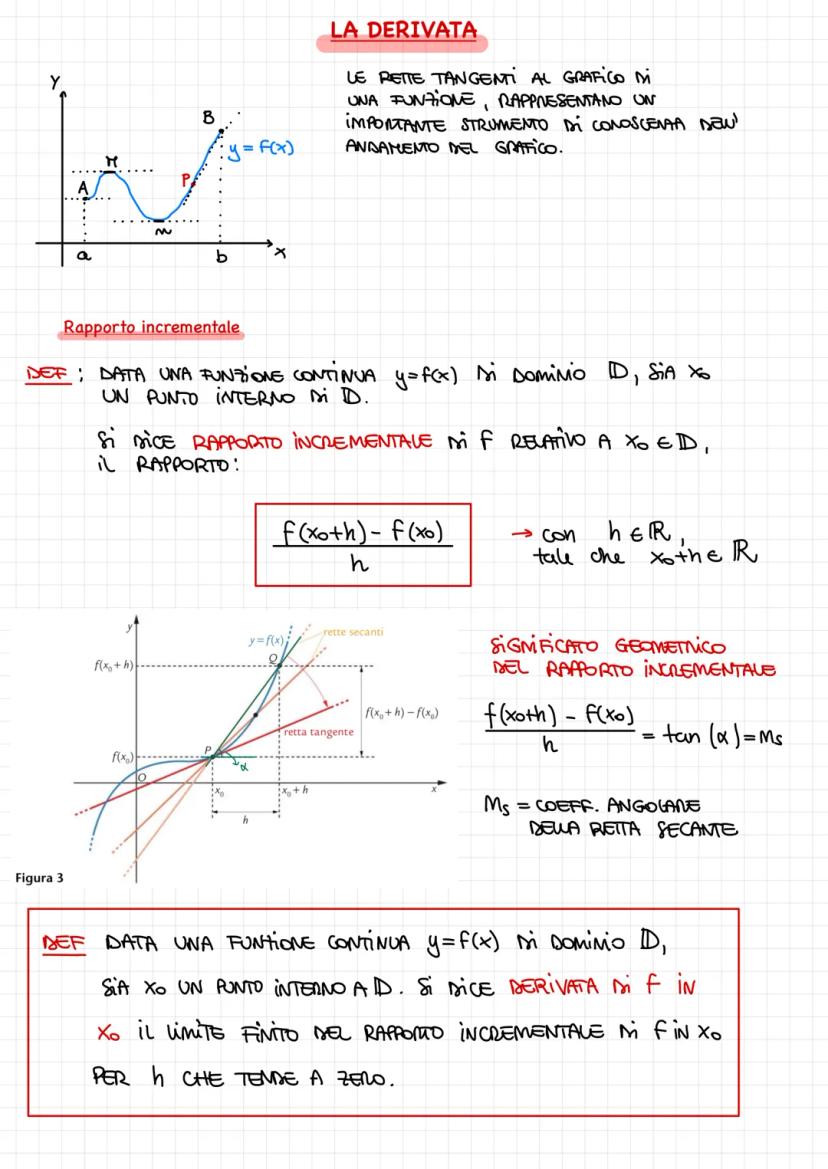 LA DERIVATA
LE RETTE TANGENTI AL GRAFICO DI
UNA FUNZIONE, RAPPRESENTANO UN
IMPORTANTE STRUMENTO DI CONOSCENZA DELL'
ANDAMENTO DEL GRAFICO.
Y
B
y = f(x)
M
P
A
m
a
b
x
Rapporto incrementale
DEF : DATA UNA FUNZIONE CONTINUA y=f(x) DI DOMINIO D, SIA x₀
UN PUNTO INTERNO DI D.
SI DICE RAPPORTO INCREMENTALE DI f RELATIVO A x₀ ∈ D,
IL RAPPORTO:
f(x₀+h) - f(x₀)
h
→ con h ∈ ℝ,
tale che x₀+h ∈ ℝ
y
y = f(x)
rette secanti
Q
f(x₀ + h)
f(x₀ + h) – f(x₀)
retta tangente
P
f(x₀)
α
O
x₀
x₀ + h
x
h
Figura 3
SIGNIFICATO GEOMETRICO
DEL RAPPORTO INCREMENTALE
f(x₀+h) - f(x₀)
h
= tan (α) = Ms
Ms = COEFF. ANGOLARE
DELLA RETTA SECANTE
DEF DATA UNA FUNZIONE CONTINUA y=f(x) DI DOMINIO D,
SIA x₀ UN PUNTO INTERNO A D. SI DICE DERIVATA DI f IN
x₀ IL LIMITE FINITO DEL RAPPORTO INCREMENTALE DI f IN x₀
PER h CHE TENDE A ZERO.